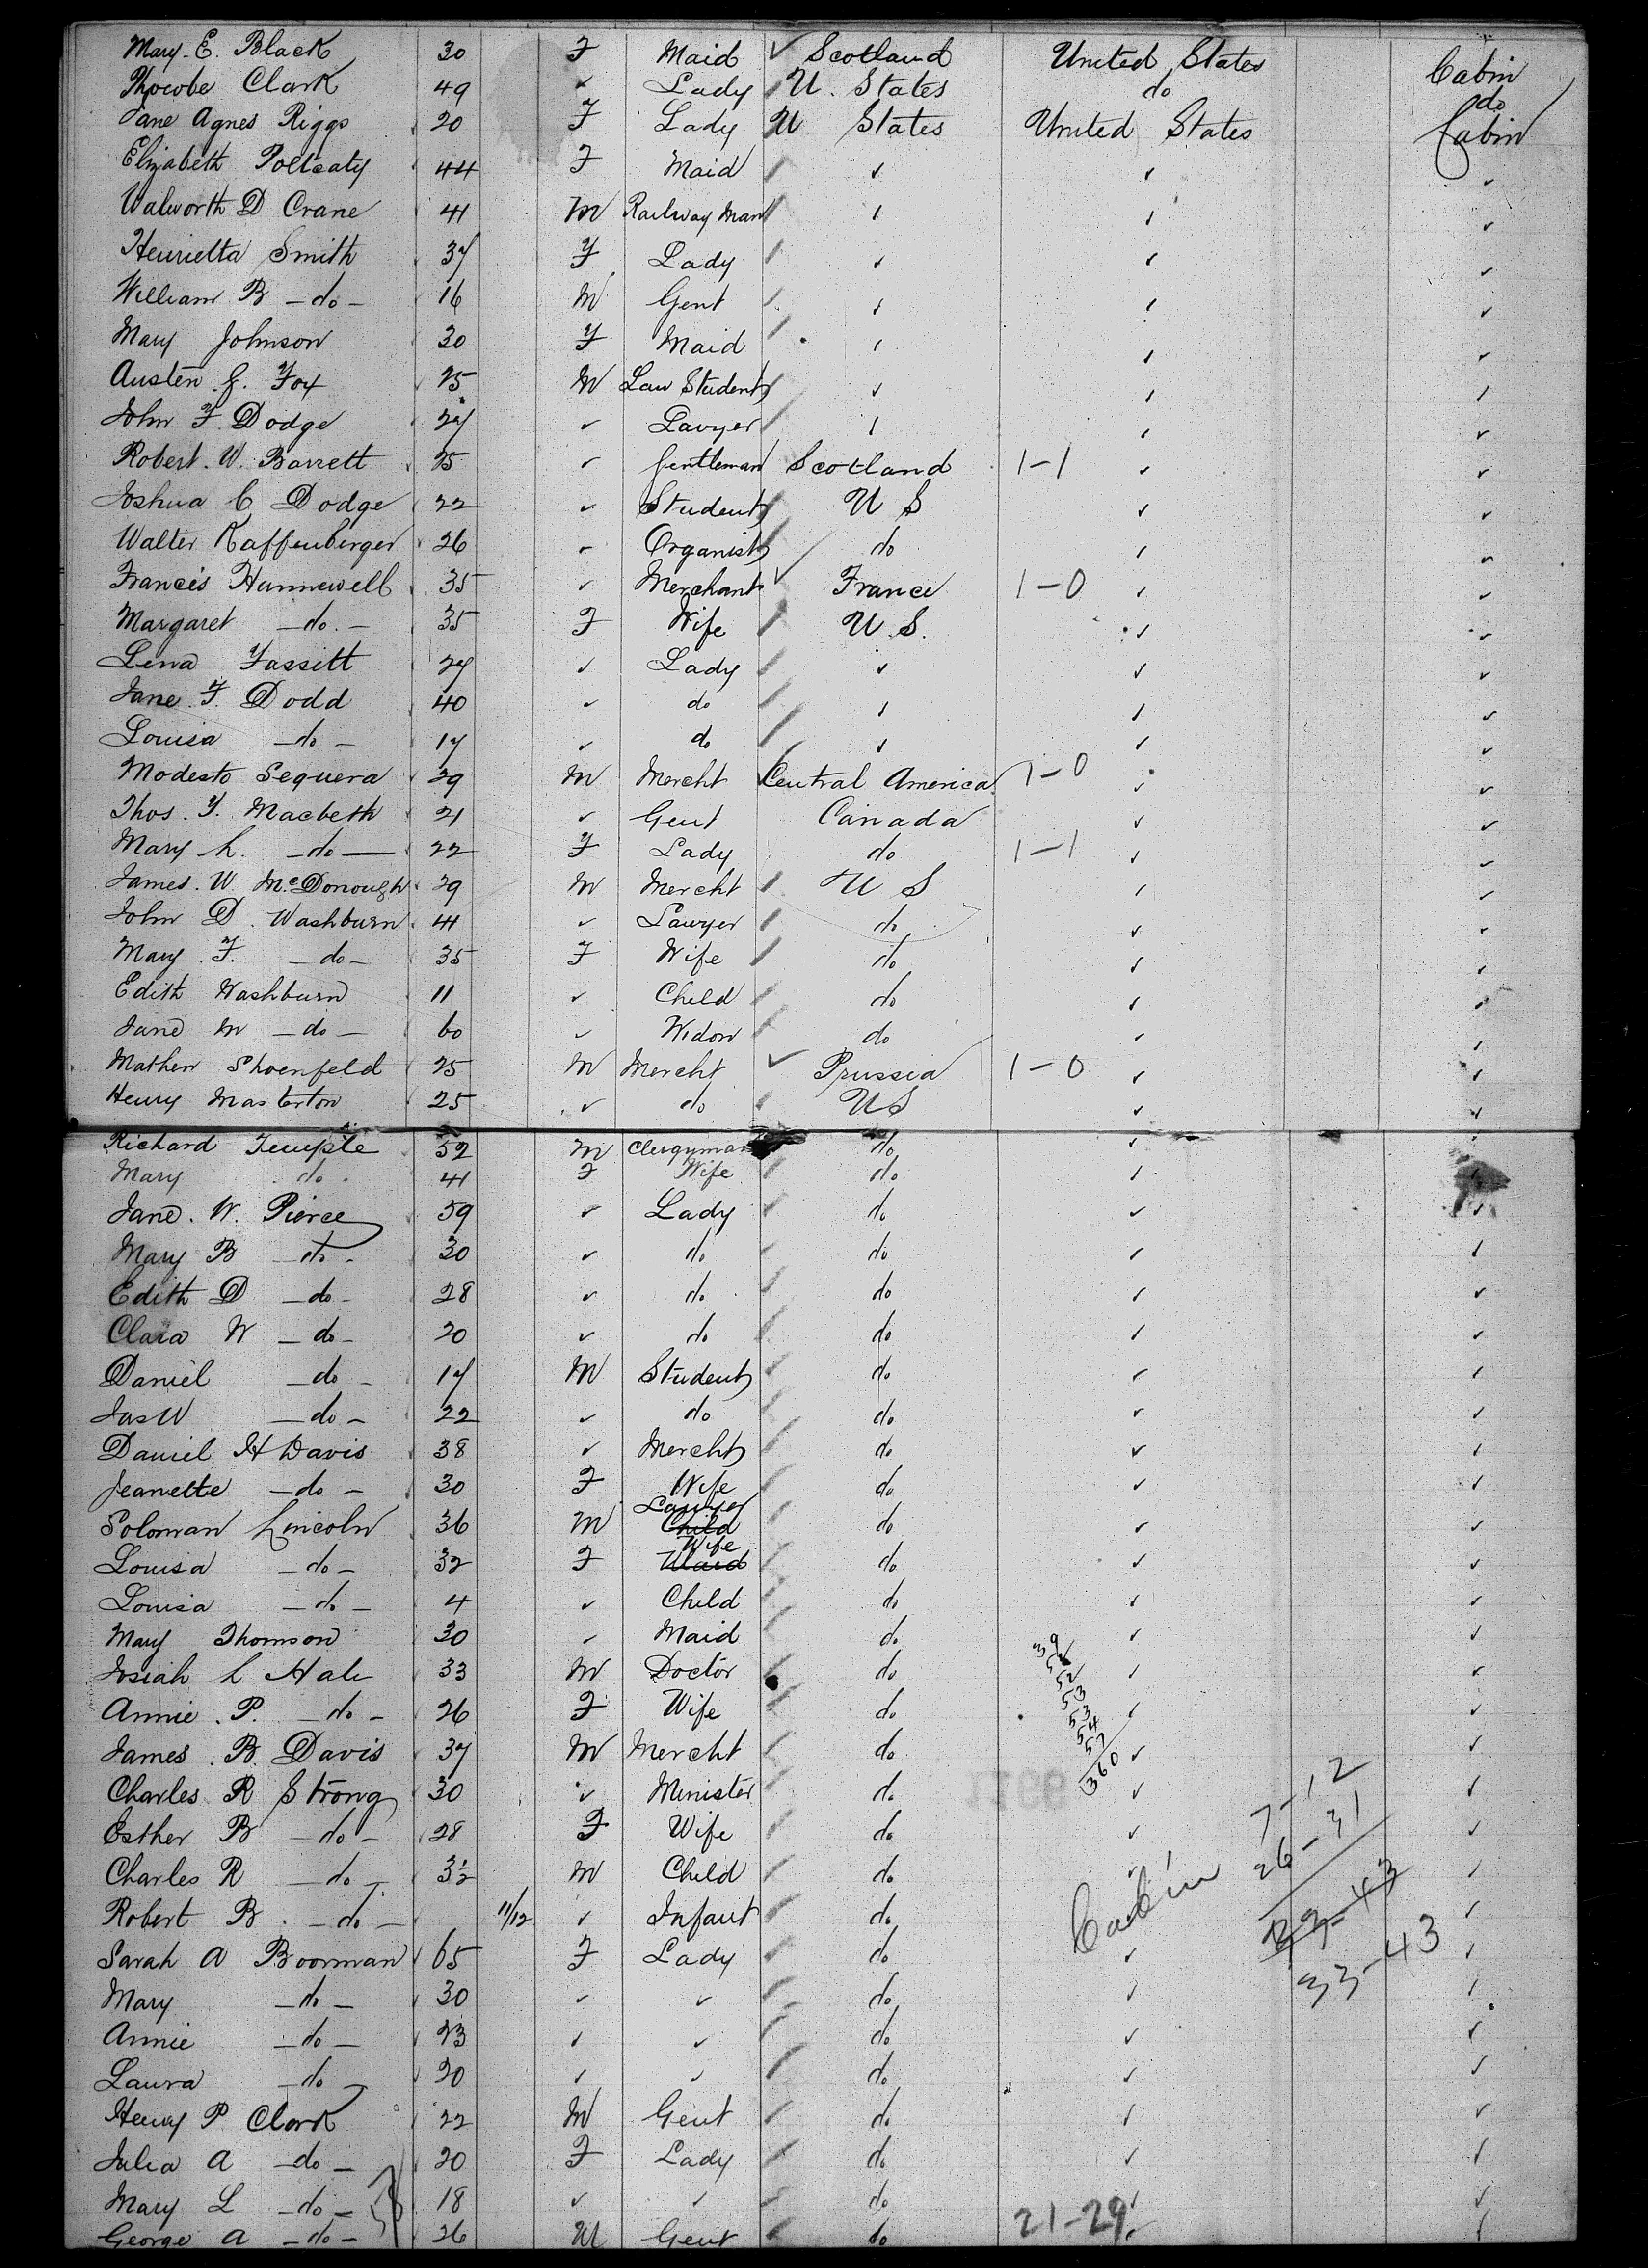 Mary E. Black 30 F Maid ✓ Scotland United States Cabin
Phoeobe Clark 49 ✓ Lady U. States do do
Jane Agnes Riggs 20 F Lady U States United States Cabin
Elizabeth 44 F Maid ✓ ✓ ✓
Walworth D Crane 41 M Railway Man ✓ ✓ ✓
Henrietta Smith 37 F Lady ✓ ✓ ✓
William B - do - 16 M Gent ✓ ✓ ✓
Mary Johnson 30 F Maid ✓ ✓ ✓
Austen G. Fox 25 M Law Student ✓ ✓ ✓
John F. Dodge 27 ✓ Lavyer ✓ ✓ ✓
Robert. W. Barrett 25 ✓ Gentleman Scotland 1-1 ✓ ✓
Joshua C Dodge 22 ✓ Student U S ✓ ✓
Walter Kaffenberger 26 ✓ Organist do ✓ ✓
Francis Hunnewell 35 ✓ Merchant ✓ France 1-0 ✓ ✓
Margaret - do. - 35 F Wife U.S. ✓ ✓
Lena Fassitt 27 ✓ Lady ✓ ✓ ✓
Jane. F. Dodd 40 ✓ do ✓ ✓ ✓
Louisa - do - 17 ✓ do ✓ ✓ ✓
Modesto Sequera 29 M Mercht Central America 1-0 ✓ ✓
Thos. Y. Macbeth 21 ✓ Gent Canada ✓ ✓
Mary L. - do - 22 F Lady do 1-1 ✓ ✓
James. W. McDonough 29 M Mercht U S ✓ ✓
John D. Washburn 41 ✓ Lawyer do ✓ ✓
Mary. F. - do - 35 F Wife do ✓ ✓
Edith Washburn 11 ✓ Child do ✓ ✓
Jane M - do - 60 ✓ Widow do ✓ ✓
Mathew Shoenfeld 25 M Mercht ✓ Prussia 1-0 ✓ ✓
Henry Masterton 25 ✓ do US ✓ ✓
Richard Temple 52 M Clergyman do ✓ ✓
Mary do 41 F Wife do ✓ ✓
Jane. W. Pierce 59 ✓ Lady do ✓ ✓
Mary B - do - 30 ✓ do do ✓ ✓
Edith D - do - 28 ✓ do do ✓ ✓
Clara W - do - 20 ✓ do do ✓ ✓
Daniel - do - 17 M Student do ✓ ✓
Jas W - do - 22 ✓ do do ✓ ✓
Daniel H Davis 38 ✓ Mercht do ✓ ✓
Jeanette - do - 30 F Wife do ✓ ✓
Soloman Lincoln 36 M Child Lawyer do ✓ ✓
Louisa - do - 32 F Maid Wife do ✓ ✓
Louisa - do - 4 ✓ Child do ✓ ✓
Mary Thomson 30 ✓ Maid do ✓ ✓
Josiah L Hale 33 M Doctor do ✓ ✓
Annie. P. - do - 26 F Wife do ✓ ✓
James. B. Davis 37 M Mercht do ✓ ✓
360
Charles R Strong 30 ✓ Minister do ✓ ✓
Esther B - do - 28 F Wife do ✓ 7-12 ✓
Charles R - do - 3½ M Child do ✓ 26-31 ✓
Robert B. - do - 11/12 ✓ Infant do Cabin ✓
Sarah A Boorman 65 F Lady do ✓ 33-43 ✓
Mary - do - 30 ✓ ✓ do ✓ ✓
Annie - do - 23 ✓ ✓ do ✓ ✓
Laura - do - 20 ✓ ✓ do ✓ ✓
Henry P Clark 22 M Gent do ✓ ✓
Julia A - do - 20 F Lady do ✓ ✓
Mary L - do - 18 ✓ ✓ do ✓ ✓
George A - do - 26 M Gent do 21-29 ✓ ✓